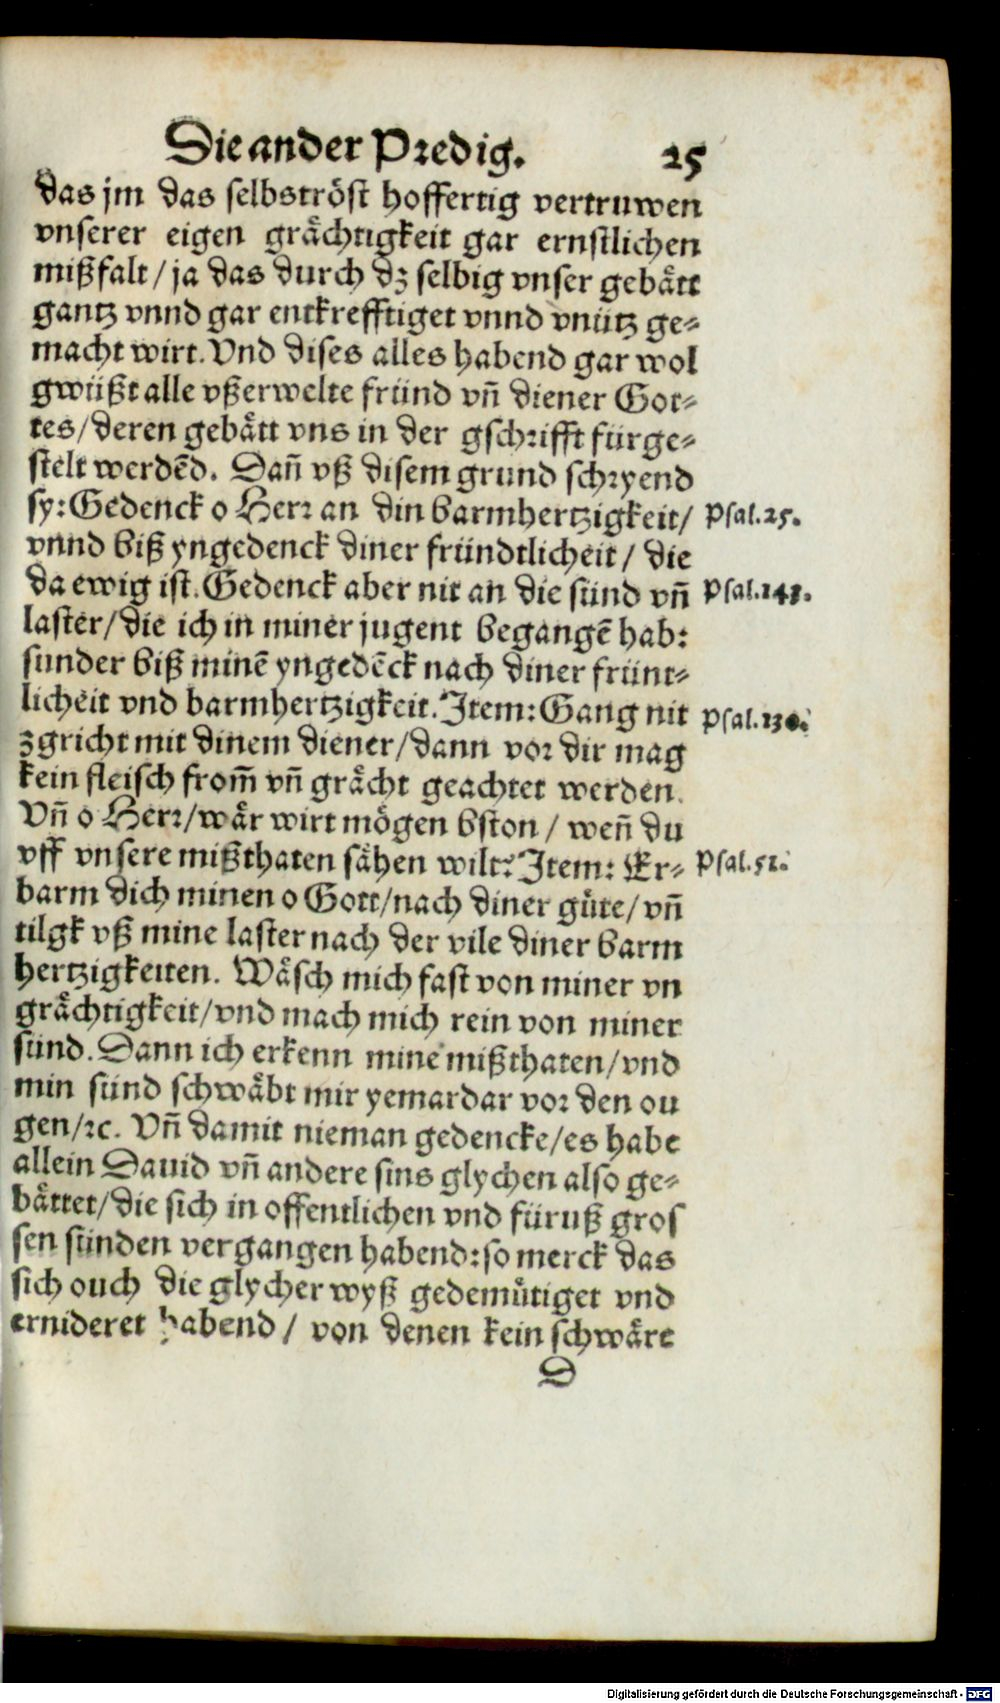 Die ander Predig. 25
das jm das selbströst hoffertig vertruwen
vnserer eigen grächtigkeit gar ernstlichen
mißfalt/ ja das durch dz selbig vnser gebätt
gantz vnnd gar entkrefftiget vnnd vnütz ge⸗
macht wirt. Vnd dises alles habend gar wol
gwüßt alle vßerwelte fründ vn̄ diener Got⸗
tes/ deren gebätt vns in der gschrifft fürge⸗
stelt werdēd. Dan̄ vß disem grund schryend
sy: Gedenck o Herr an din barmhertzigkeit/ Psal.25.
vnnd biß yngedenck diner fründtlicheit/ die
da ewig ist. Gedenck aber nit an die sünd vn̄ Psal.143.
laster/ die ich in miner jugent begangē hab:
sunder biß minē yngedēck nach diner frünt⸗
licheit vnd barmhertzigkeit. Item: Gang nit Psal.130.
zgricht mit dinem diener/ dann vor dir mag
kein fleisch from̄ vn̄ grächt geachtet werden.
Vn̄ o Herr/ wär wirt mögen bston/ wen̄ du
vff vnsere mißthaten sähen wilt? Item: Er⸗ Psal.51.
barm dich minen o Gott/ nach diner güte/ vn̄
tilgk vß mine laster nach der vile diner barm
hertzigkeiten. Wäsch mich fast von miner vn
grächtigkeit/ vnd mach mich rein von miner
sünd. Dann ich erkenn mine mißthaten/ vnd
min sünd schwäbt mir yemardar vor den ou
gen/ ꝛc. Vn̄ damit nieman gedencke/ es habe
allein Dauid vn̄ andere sins glychen also ge⸗
bättet/ die sich in offentlichen vnd füruß gros
sen sünden vergangen habend: so merck das
sich ouch die glycher wyß gedemütiget vnd
ernideret habend/ von denen kein schwäre
D
Digitalisierung gefördert durch die Deutsche Forschungsgemeinschaft - DFG